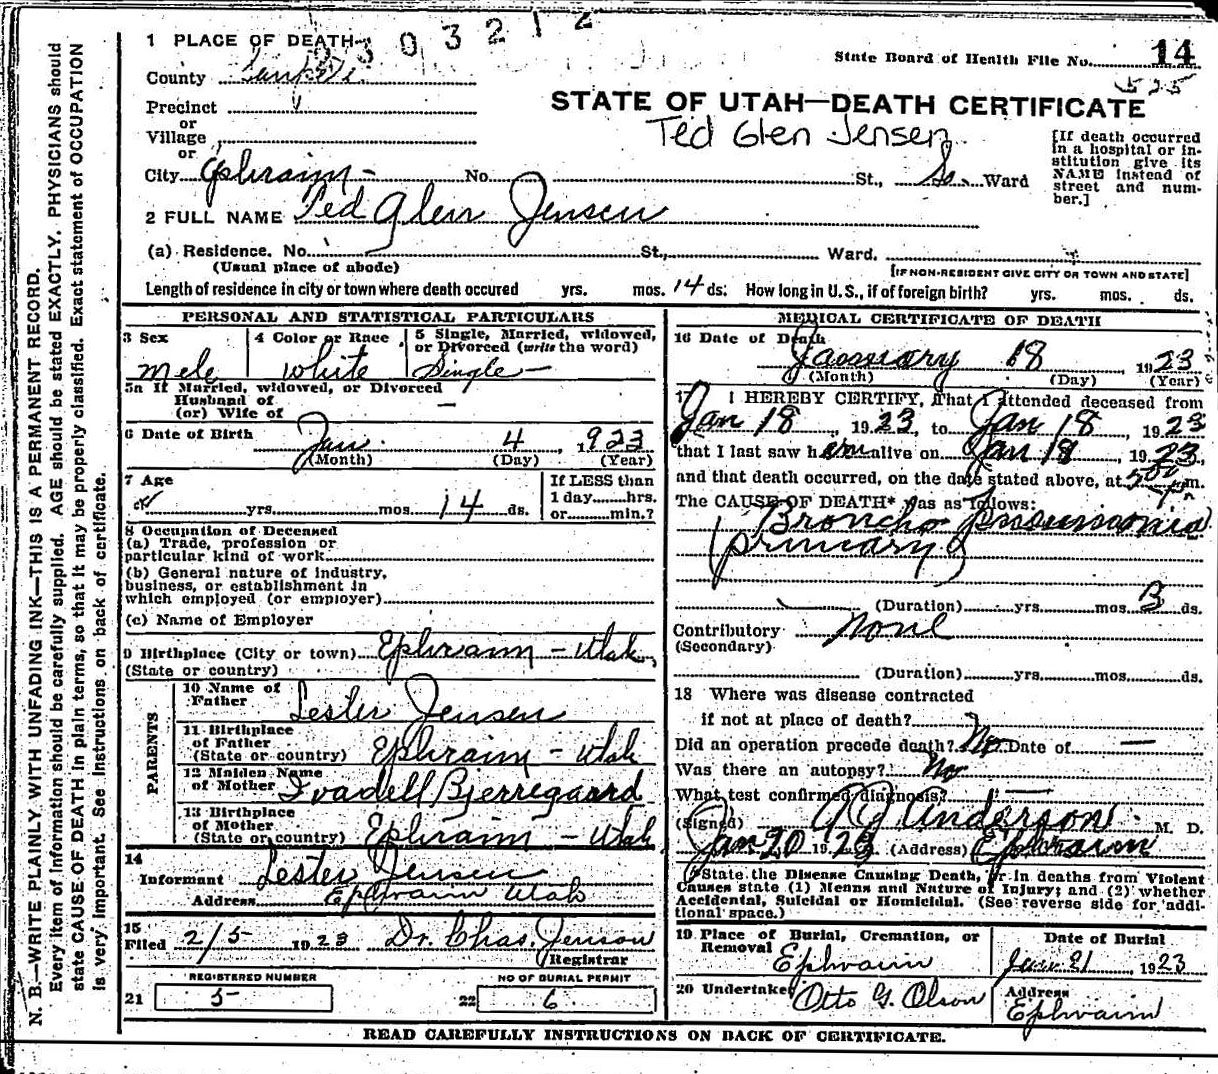 2303212
1 PLACE OF DEATH
State Board of Health File No. 14
County Sanpete
525
Precinct
STATE OF UTAH—DEATH CERTIFICATE
or
Village
Ted Glen Jensen
[If death occurred in a hospital or in-
stitution give its
NAME instead of
street and num-
ber.]
or
City Ephraim - No. St., So. Ward
2 FULL NAME Ted Glen Jensen
(a) Residence. No. St., Ward.
(Usual place of abode)
[IF NON-RESIDENT GIVE CITY OR TOWN AND STATE]
Length of residence in city or town where death occured yrs. mos. 14 ds. How long in U. S., if of foreign birth? yrs. mos. ds.
PERSONAL AND STATISTICAL PARTICULARS
3 Sex
Male
4 Color or Race
White
5 Single, Married, widowed,
or Divorced (write the word)
Single -
5a If Married, widowed, or Divorced
Husband of
(or) Wife of —
6 Date of Birth Jan. 4, 1923
(Month) (Day) (Year)
7 Age
yrs. mos. 14 ds.
If LESS than
1 day hrs.
or min.?
8 Occupation of Deceased
(a) Trade, profession or
particular kind of work
(b) General nature of industry,
business, or establishment in
which employed (or employer)
(c) Name of Employer
9 Birthplace (City or town) Ephraim - Utah
(State or country)
PARENTS
10 Name of
Father Lester Jensen
11 Birthplace
of Father
(State or country) Ephraim - Utah
12 Maiden Name
of Mother Ivadell Bjerregaard
13 Birthplace
of Mother
(State or country) Ephraim - Utah
14
Informant Lester Jensen
Address Ephraim Utah
15
Filed 2/5 1923 Dr. Chas. Jenson
Registrar
REGISTERED NUMBER
21 5
NO OF BURIAL PERMIT
22 6
MEDICAL CERTIFICATE OF DEATH
16 Date of Death
January 18, 1923
(Month) (Day) (Year)
17 I HEREBY CERTIFY, That I attended deceased from
Jan 18, 1923, to Jan 18, 1923
that I last saw him alive on Jan 18, 1923,
and that death occurred, on the date stated above, at 5 00 Pm.
The CAUSE OF DEATH* was as follows:
Broncho pneumonia
(primary)
(Duration) yrs. mos. 3 ds.
Contributory None
(Secondary)
(Duration) yrs. mos. ds.
18 Where was disease contracted
if not at place of death?
Did an operation precede death? No Date of —
Was there an autopsy? No
What test confirmed diagnosis? —
(Signed) Anderson M. D.
Jan 20 1923 (Address) Ephraim
*State the Disease Causing Death, or in deaths from Violent
Causes state (1) Menns and Nature of Injury; and (2) whether
Accidental, Suicidal or Homicidal. (See reverse side for addi-
tional space.)
19 Place of Burial, Cremation, or
Removal
Ephraim
Date of Burial
Jan 21, 1923
20 Undertaker
Otto G. Olson
Address
Ephraim
READ CAREFULLY INSTRUCTIONS ON BACK OF CERTIFICATE.
N. B.—WRITE PLAINLY WITH UNFADING INK—THIS IS A PERMANENT RECORD.
Every item of information should be carefully supplied. AGE should be stated EXACTLY. PHYSICIANS should
state CAUSE OF DEATH in plain terms, so that it may be properly classified. Exact statement of OCCUPATION
is very important. See Instructions on back of certificate.